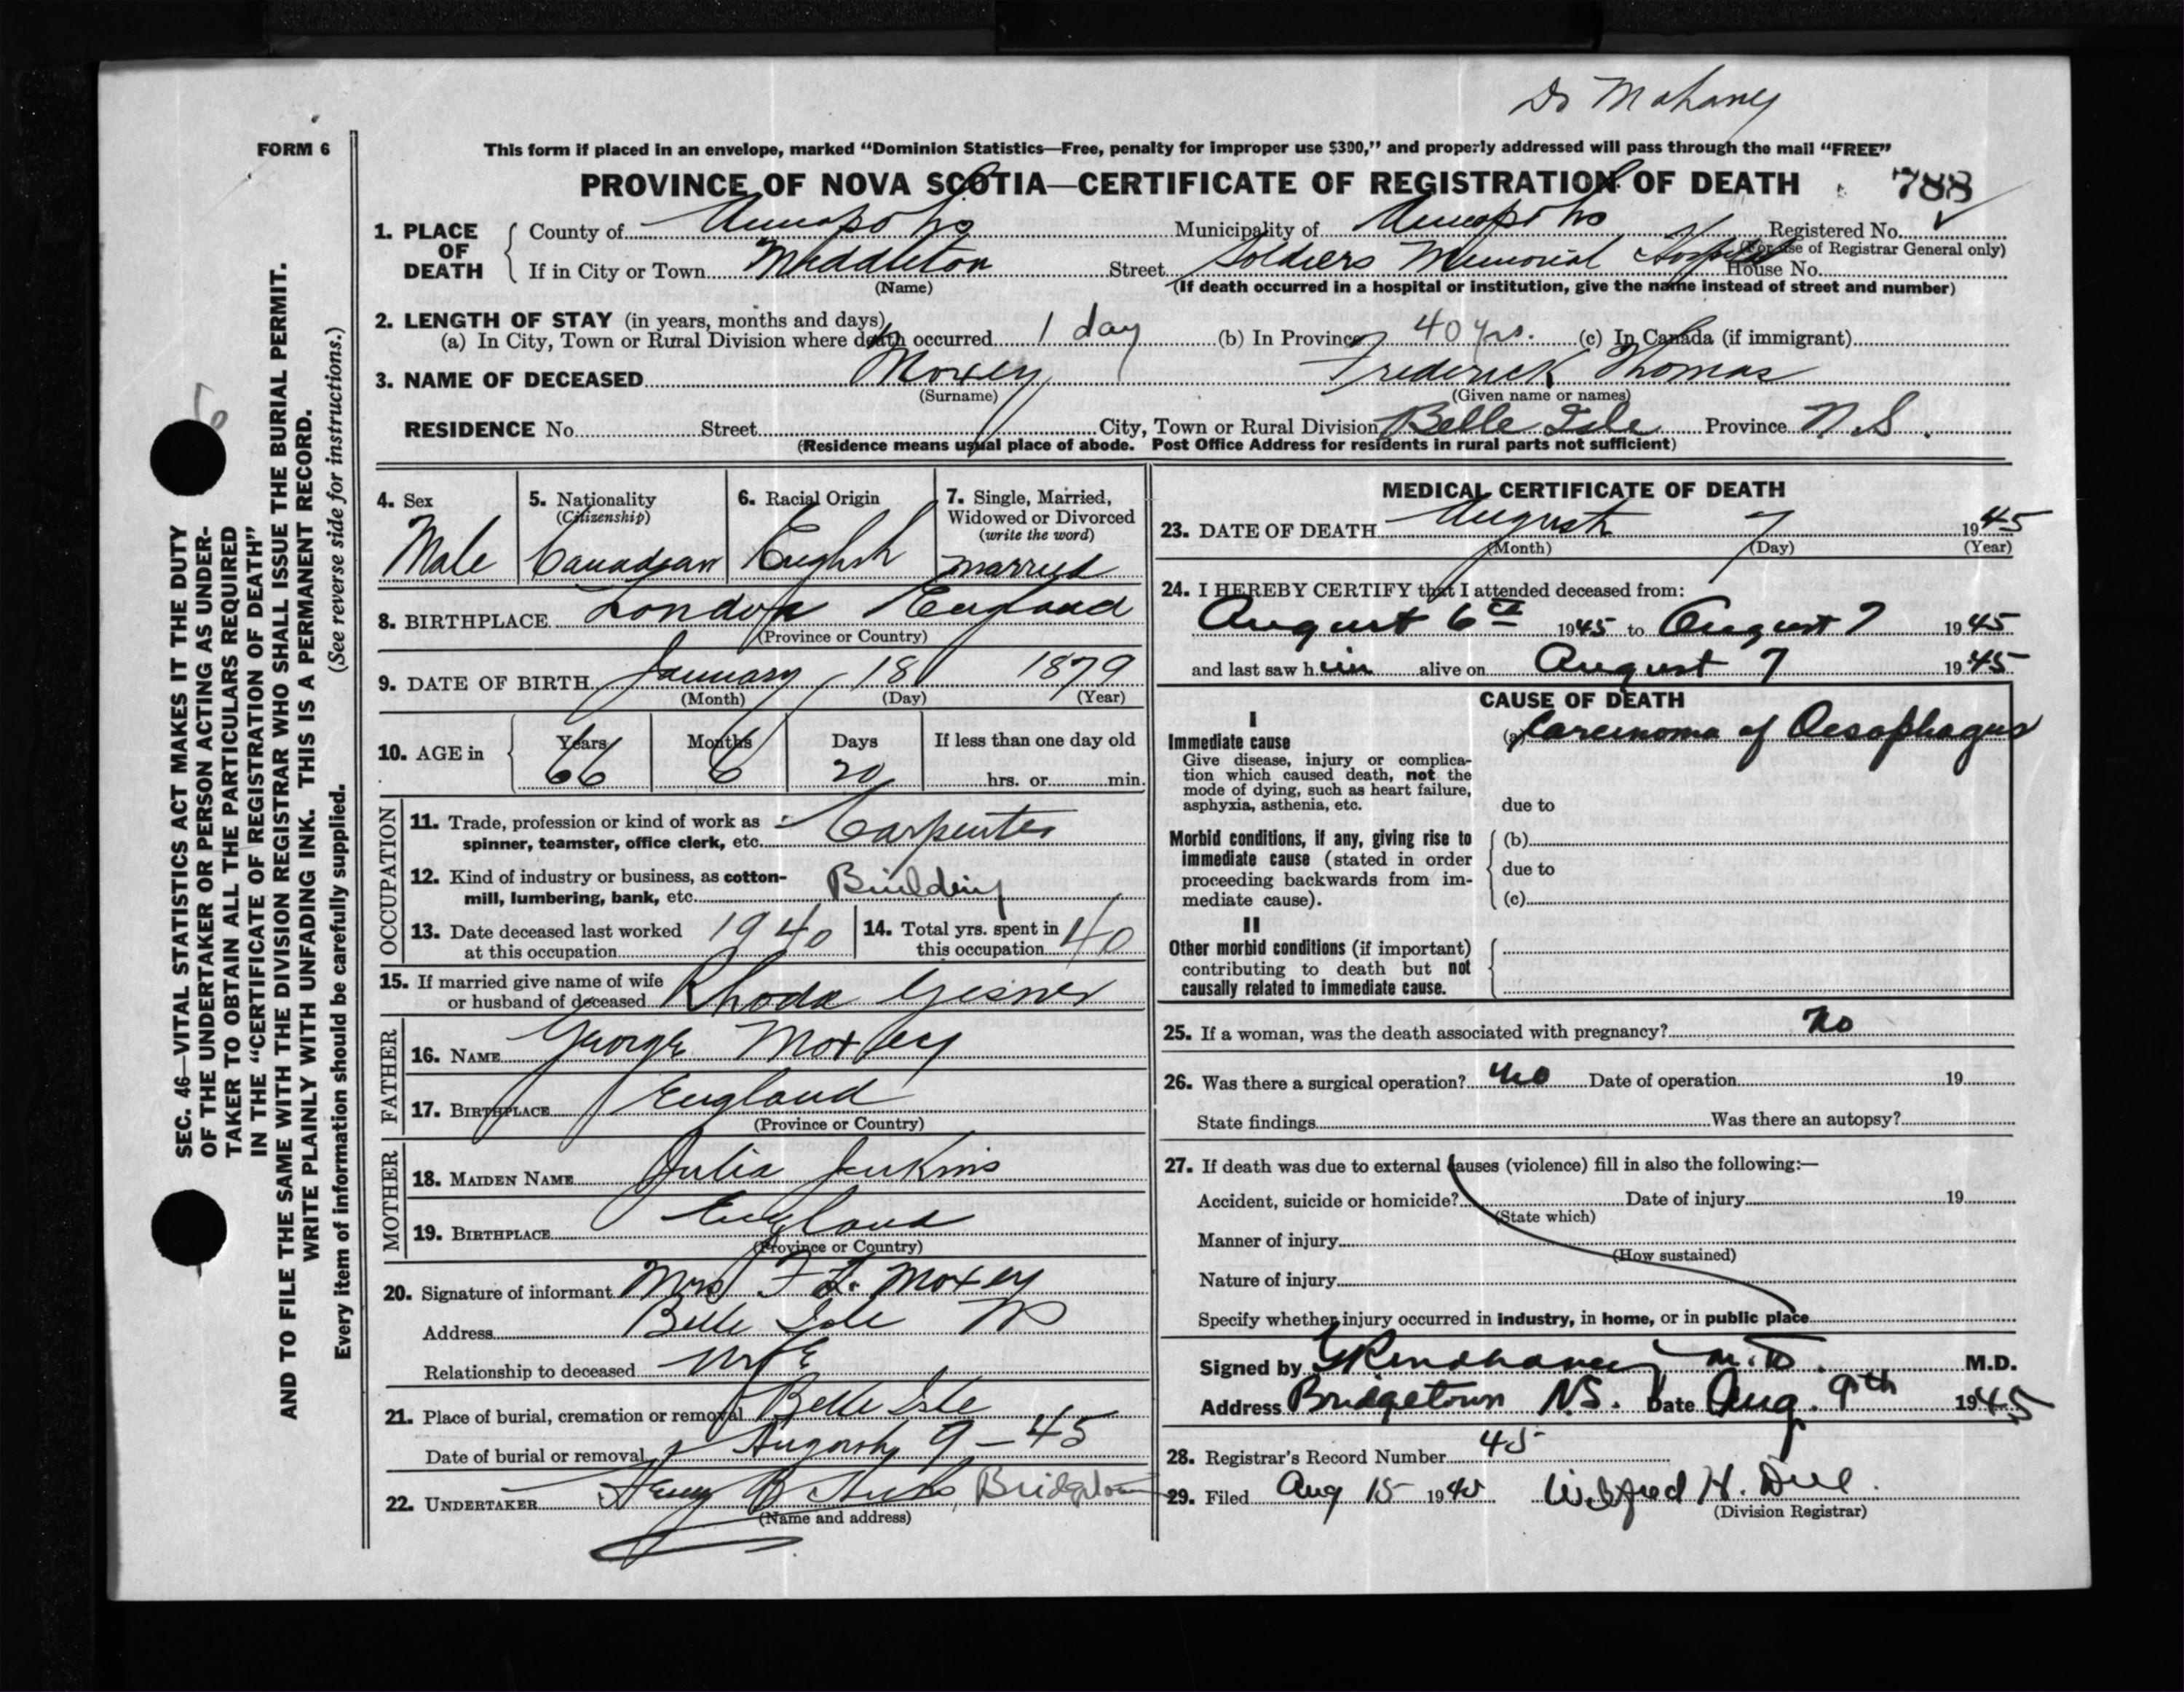 Dr Mahaney
FORM 6
This form if placed in an envelope, marked “Dominion Statistics—Free, penalty for improper use $300,” and properly addressed will pass through the mail “FREE”
PROVINCE OF NOVA SCOTIA—CERTIFICATE OF REGISTRATION OF DEATH 788
1. PLACE OF DEATH County of Annapolis Municipality of Annapolis Registered No.
(For use of Registrar General only)
If in City or Town Middleton Street Soldiers Memorial Hospital House No.
(Name) (If death occurred in a hospital or institution, give the name instead of street and number)
2. LENGTH OF STAY (in years, months and days)
(a) In City, Town or Rural Division where death occurred 1 day (b) In Province 40 yrs. (c) In Canada (if immigrant)
3. NAME OF DECEASED Moxey Frederick Thomas
(Surname) (Given name or names)
RESIDENCE No. Street City, Town or Rural Division Belle Isle Province N.S.
(Residence means usual place of abode. Post Office Address for residents in rural parts not sufficient)
4. Sex Male
5. Nationality (Citizenship) Canadian
6. Racial Origin English
7. Single, Married, Widowed or Divorced (write the word) married
8. BIRTHPLACE London England
(Province or Country)
9. DATE OF BIRTH January 18 1879
(Month) (Day) (Year)
10. AGE in Years 66 Months 6 Days 20 If less than one day old hrs. or min.
OCCUPATION
11. Trade, profession or kind of work as spinner, teamster, office clerk, etc. Carpenter
12. Kind of industry or business, as cotton-mill, lumbering, bank, etc. Building
13. Date deceased last worked at this occupation 1940
14. Total yrs. spent in this occupation 40
15. If married give name of wife or husband of deceased Rhoda Gesner
FATHER
16. NAME George Moxley
17. BIRTHPLACE England
(Province or Country)
MOTHER
18. MAIDEN NAME Julia Jenkins
19. BIRTHPLACE England
(Province or Country)
20. Signature of informant Mrs F T. Moxey
Address Belle Isle NS
Relationship to deceased Wife
21. Place of burial, cremation or removal Belle Isle
Date of burial or removal August 9 - 45
22. UNDERTAKER Bridgetown
(Name and address)
MEDICAL CERTIFICATE OF DEATH
23. DATE OF DEATH August 7 1945
(Month) (Day) (Year)
24. I HEREBY CERTIFY that I attended deceased from:
August 6th 1945 to August 7 1945
and last saw him alive on August 7 1945
CAUSE OF DEATH
I
Immediate cause (a) Carcinoma of Oesophagus
Give disease, injury or complication which caused death, not the mode of dying, such as heart failure, asphyxia, asthenia, etc. due to
Morbid conditions, if any, giving rise to immediate cause (stated in order proceeding backwards from immediate cause). (b)
due to
(c)
II
Other morbid conditions (if important) contributing to death but not causally related to immediate cause.
25. If a woman, was the death associated with pregnancy? no
26. Was there a surgical operation? no Date of operation 19
State findings Was there an autopsy?
27. If death was due to external causes (violence) fill in also the following:—
Accident, suicide or homicide? Date of injury 19
(State which)
Manner of injury
(How sustained)
Nature of injury
Specify whether injury occurred in industry, in home, or in public place
Signed by M.D. M.D.
Address Bridgetown N.S. Date Aug. 9th 1945
28. Registrar's Record Number 45
29. Filed Aug 15 1945 Wilfred H.
(Division Registrar)
SEC. 46—VITAL STATISTICS ACT MAKES IT THE DUTY
OF THE UNDERTAKER OR PERSON ACTING AS UNDER-
TAKER TO OBTAIN ALL THE PARTICULARS REQUIRED
IN THE “CERTIFICATE OF REGISTRATION OF DEATH”
AND TO FILE THE SAME WITH THE DIVISION REGISTRAR WHO SHALL ISSUE THE BURIAL PERMIT.
WRITE PLAINLY WITH UNFADING INK. THIS IS A PERMANENT RECORD.
Every item of information should be carefully supplied. (See reverse side for instructions.)